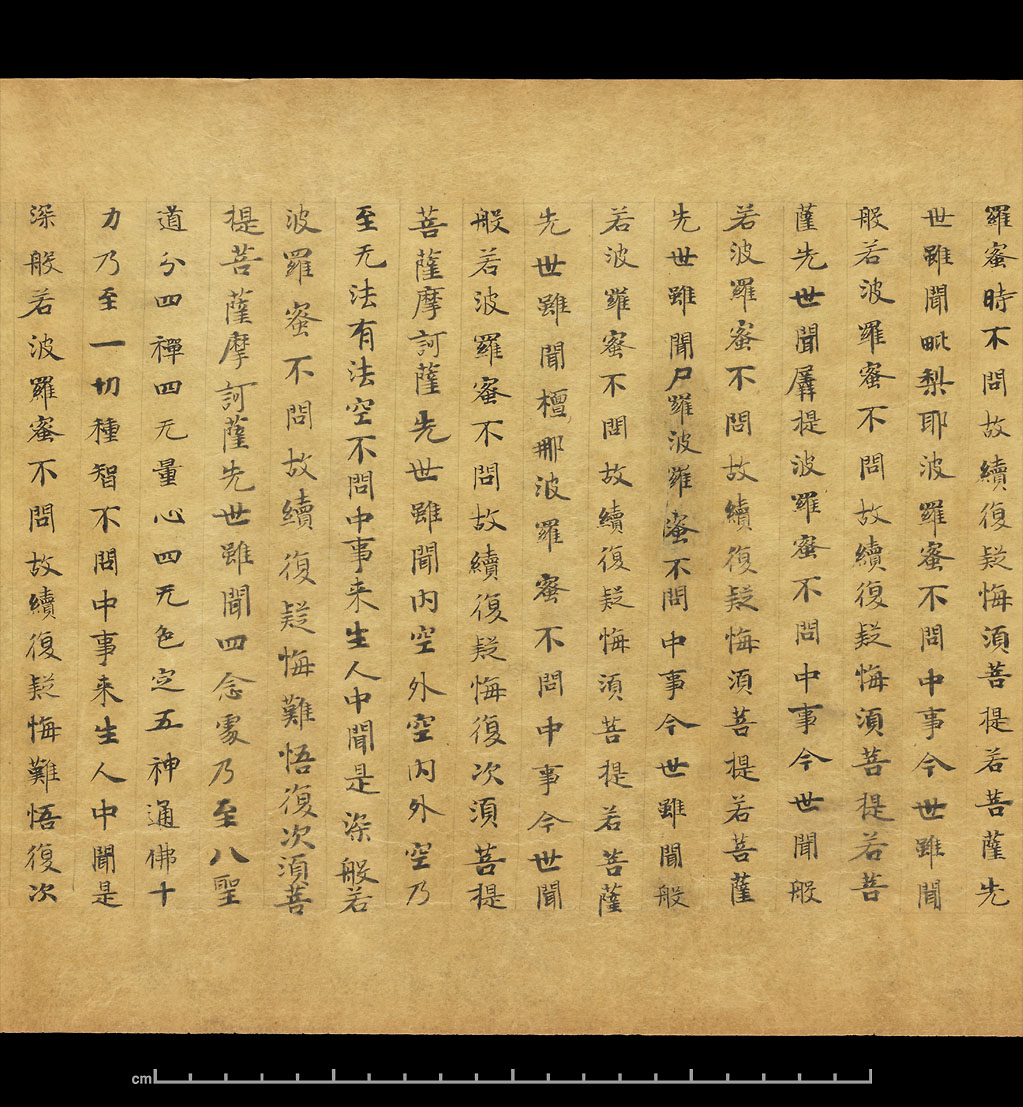 羅蜜時不問故續復疑悔須菩提若菩薩先
世雖聞毗梨耶波羅蜜不問中事今世雖聞
般若波羅蜜不問故續復疑悔須菩提若菩
薩先世聞羼提波羅蜜不問中事今世聞般
若波羅蜜不問故續復疑悔須菩提若菩薩
先世雖聞尸羅波羅蜜不問中事今世雖聞般
若波羅蜜不問故續復疑悔須菩提若菩薩
先世雖聞檀那波羅蜜不問中事今世聞
般若波羅蜜不問故續復疑悔復次須菩提
菩薩摩訶薩先世雖聞內空外空內外空乃
至无法有法空不問中事来生人中聞是深般若
波羅蜜不問故續復疑悔難悟復次須菩
提菩薩摩訶薩先世雖聞四念處乃至八聖
道分四禪四无量心四无色定五神通佛十
力乃至一切種智不問中事来生人中聞是
深般若波羅蜜不問故續復疑悔難悟復次
cm